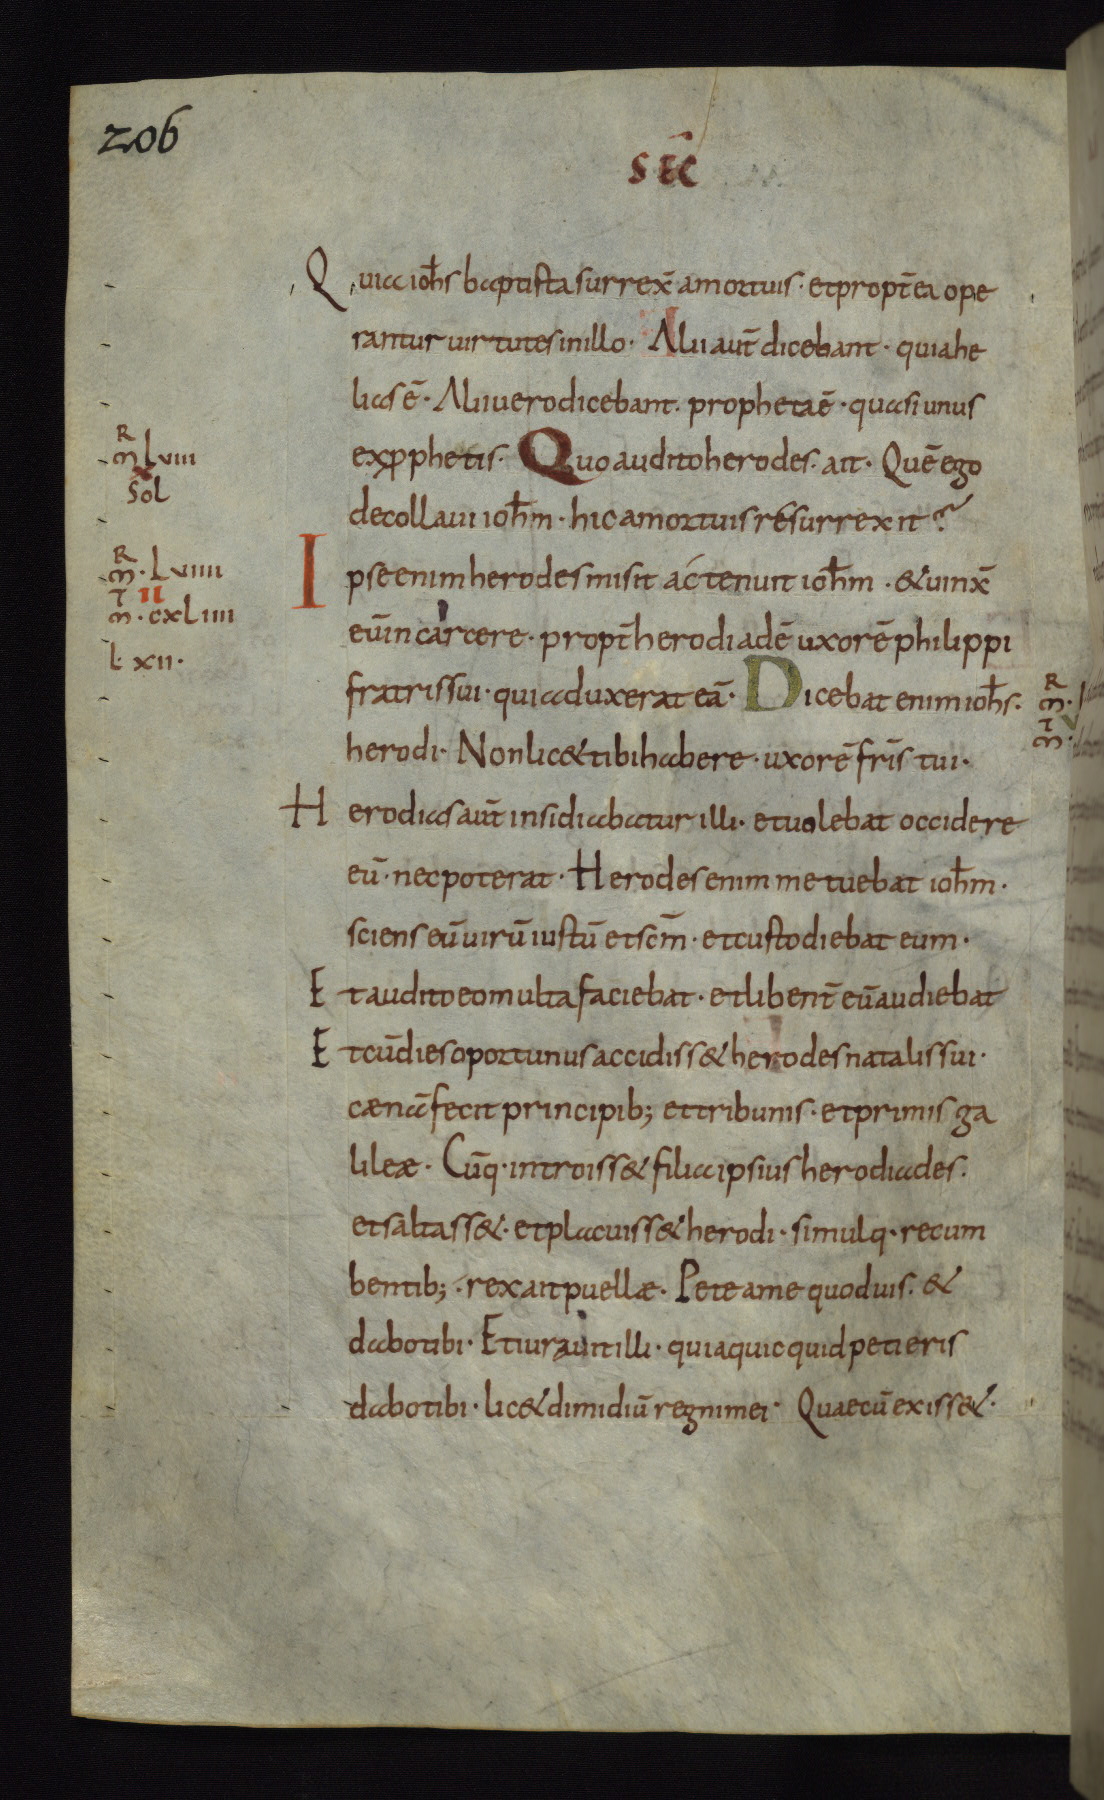 206
SEC̄
Quia ioh̄s baptista surrex̄ amortuis · et propt̄ ea ope
rantur uirtutes inillo · Alii aut̄ dicebant · quia he
lias ē · Alii uero dicebant · propheta ē · quasi unus
ex prophetis · Quo audito herodes · ait · Quē ego
decollaui ioh̄m · hic amortuis resurrexit ?
Ipse enim herodes misit ac tenuit ioh̄m · & uinx̄
eū in carcere · propt̄ herodiadē uxorē philippi
fratris sui · quia duxerat eā · Dicebat enim ioh̄s ·
herodi · Non lic& tibi habere · uxorē fr̄is tui ·
Herodias aut̄ insidiabatur illi · et uolebat occidere
eū · nec poterat · Herodes enim metuebat ioh̄m ·
sciens eū uirū iustū et sc̄m · et custodiebat eum ·
Et audito eo multa faciebat · et libent̄ eū audiebat
Et cū dies oportunus accidiss& herodes natalis sui ·
caenā fecit principib; et tribunis · et primis ga
lileæ · Cūq· introiss& filia ipsius herodiades ·
et saltass& · et placuiss& herodi · simulq· recum
bentib; · rex ait puellæ · Pete a me quod uis · &
dabo tibi · Et iurauit illi · quia quicquid petieris
dabo tibi · lic& dimidiū regni mei · Quae cū exiss& ·
R
m̄ Lviii
x
Sol
R
m̄ · Lviiii
T II
m̄ · cxLiiii
L xii ·
R
m̄ · L
T V
m̄ ·